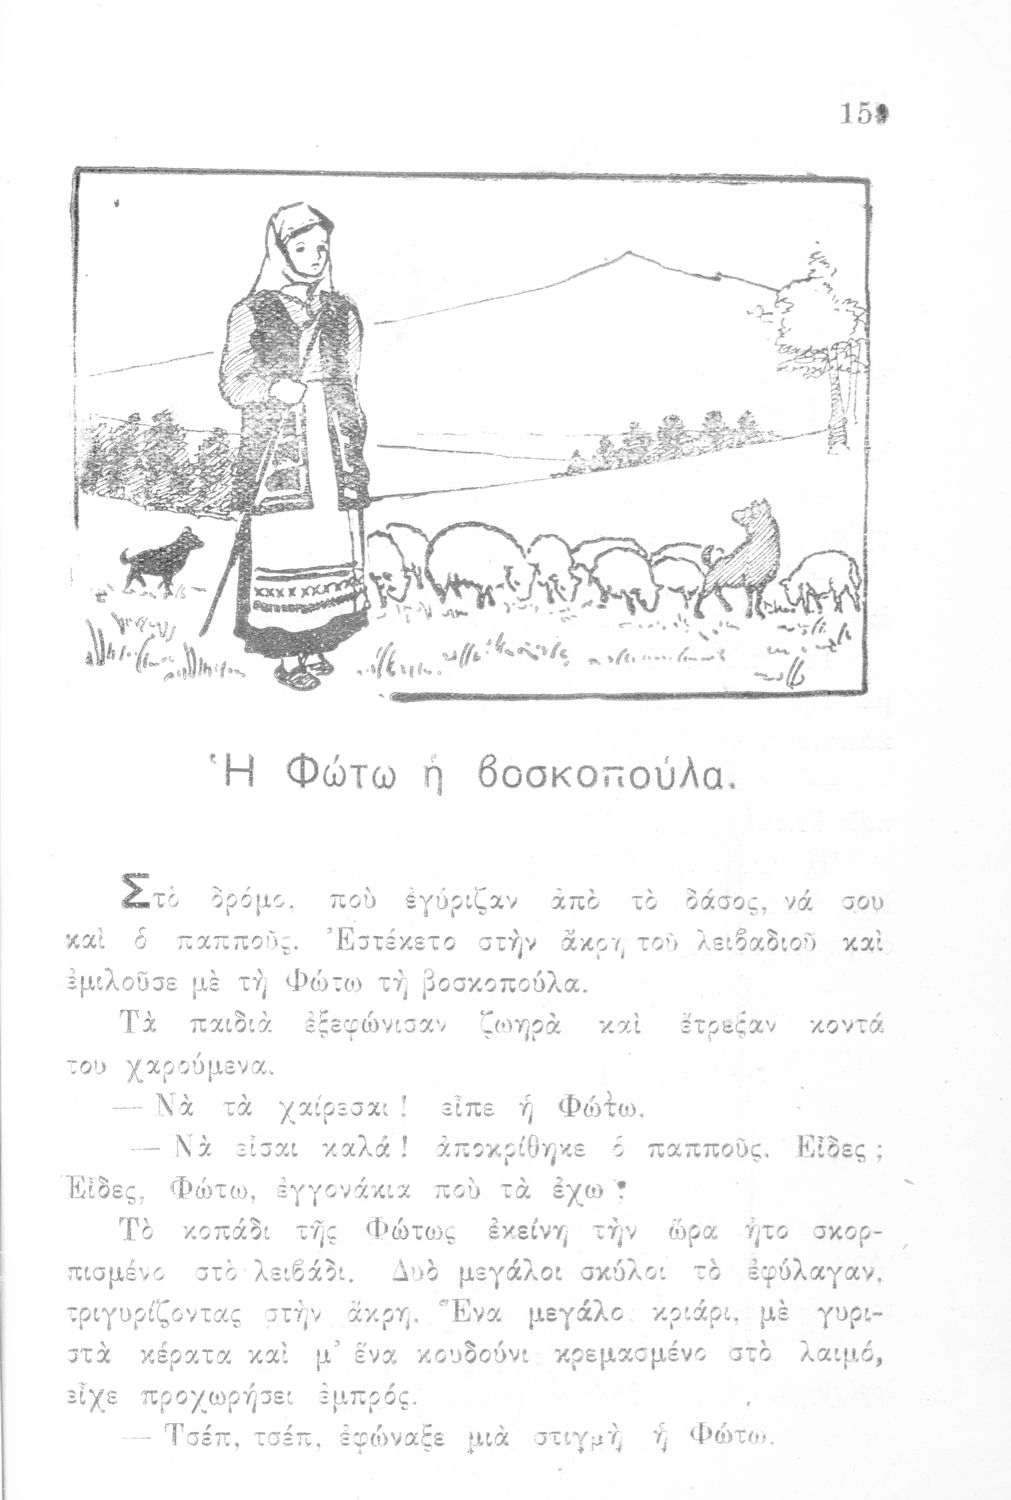 159
Ἡ Φώτω ἡ βοσκοπούλα.
Στὸ δρόμο, ποὺ ἐγύριζαν ἀπὸ τὸ δάσος, νά σου
καὶ ὁ παπποῦς. Ἐστέκετο στὴν ἄκρη τοῦ λειβαδιοῦ καὶ
ἐμιλοῦσε μὲ τὴ Φώτω τὴ βοσκοπούλα.
Τὰ παιδιὰ ἐξεφώνισαν ζωηρὰ καὶ ἔτρεξαν κοντά
του χαρούμενα.
— Νὰ τὰ χαίρεσαι ! εἶπε ἡ Φώτω.
— Νὰ εἶσαι καλά ! ἀποκρίθηκε ὁ παπποῦς. Εἶδες ;
Εἶδες, Φώτω, ἐγγονάκια ποὺ τὰ ἔχω ;
Τὸ κοπάδι τῆς Φώτως ἐκείνη τὴν ὥρα ἦτο σκορ-
πισμένο στὸ λειβάδι. Δυὸ μεγάλοι σκύλοι τὸ ἐφύλαγαν,
τριγυρίζοντας στὴν ἄκρη. Ἕνα μεγάλο κριάρι, μὲ γυρι-
στὰ κέρατα καὶ μ' ἕνα κουδούνι κρεμασμένο στὸ λαιμό,
εἶχε προχωρήσει ἐμπρός.
— Τσέπ, τσέπ, ἐφώναξε μιὰ στιγμὴ ἡ Φώτω.